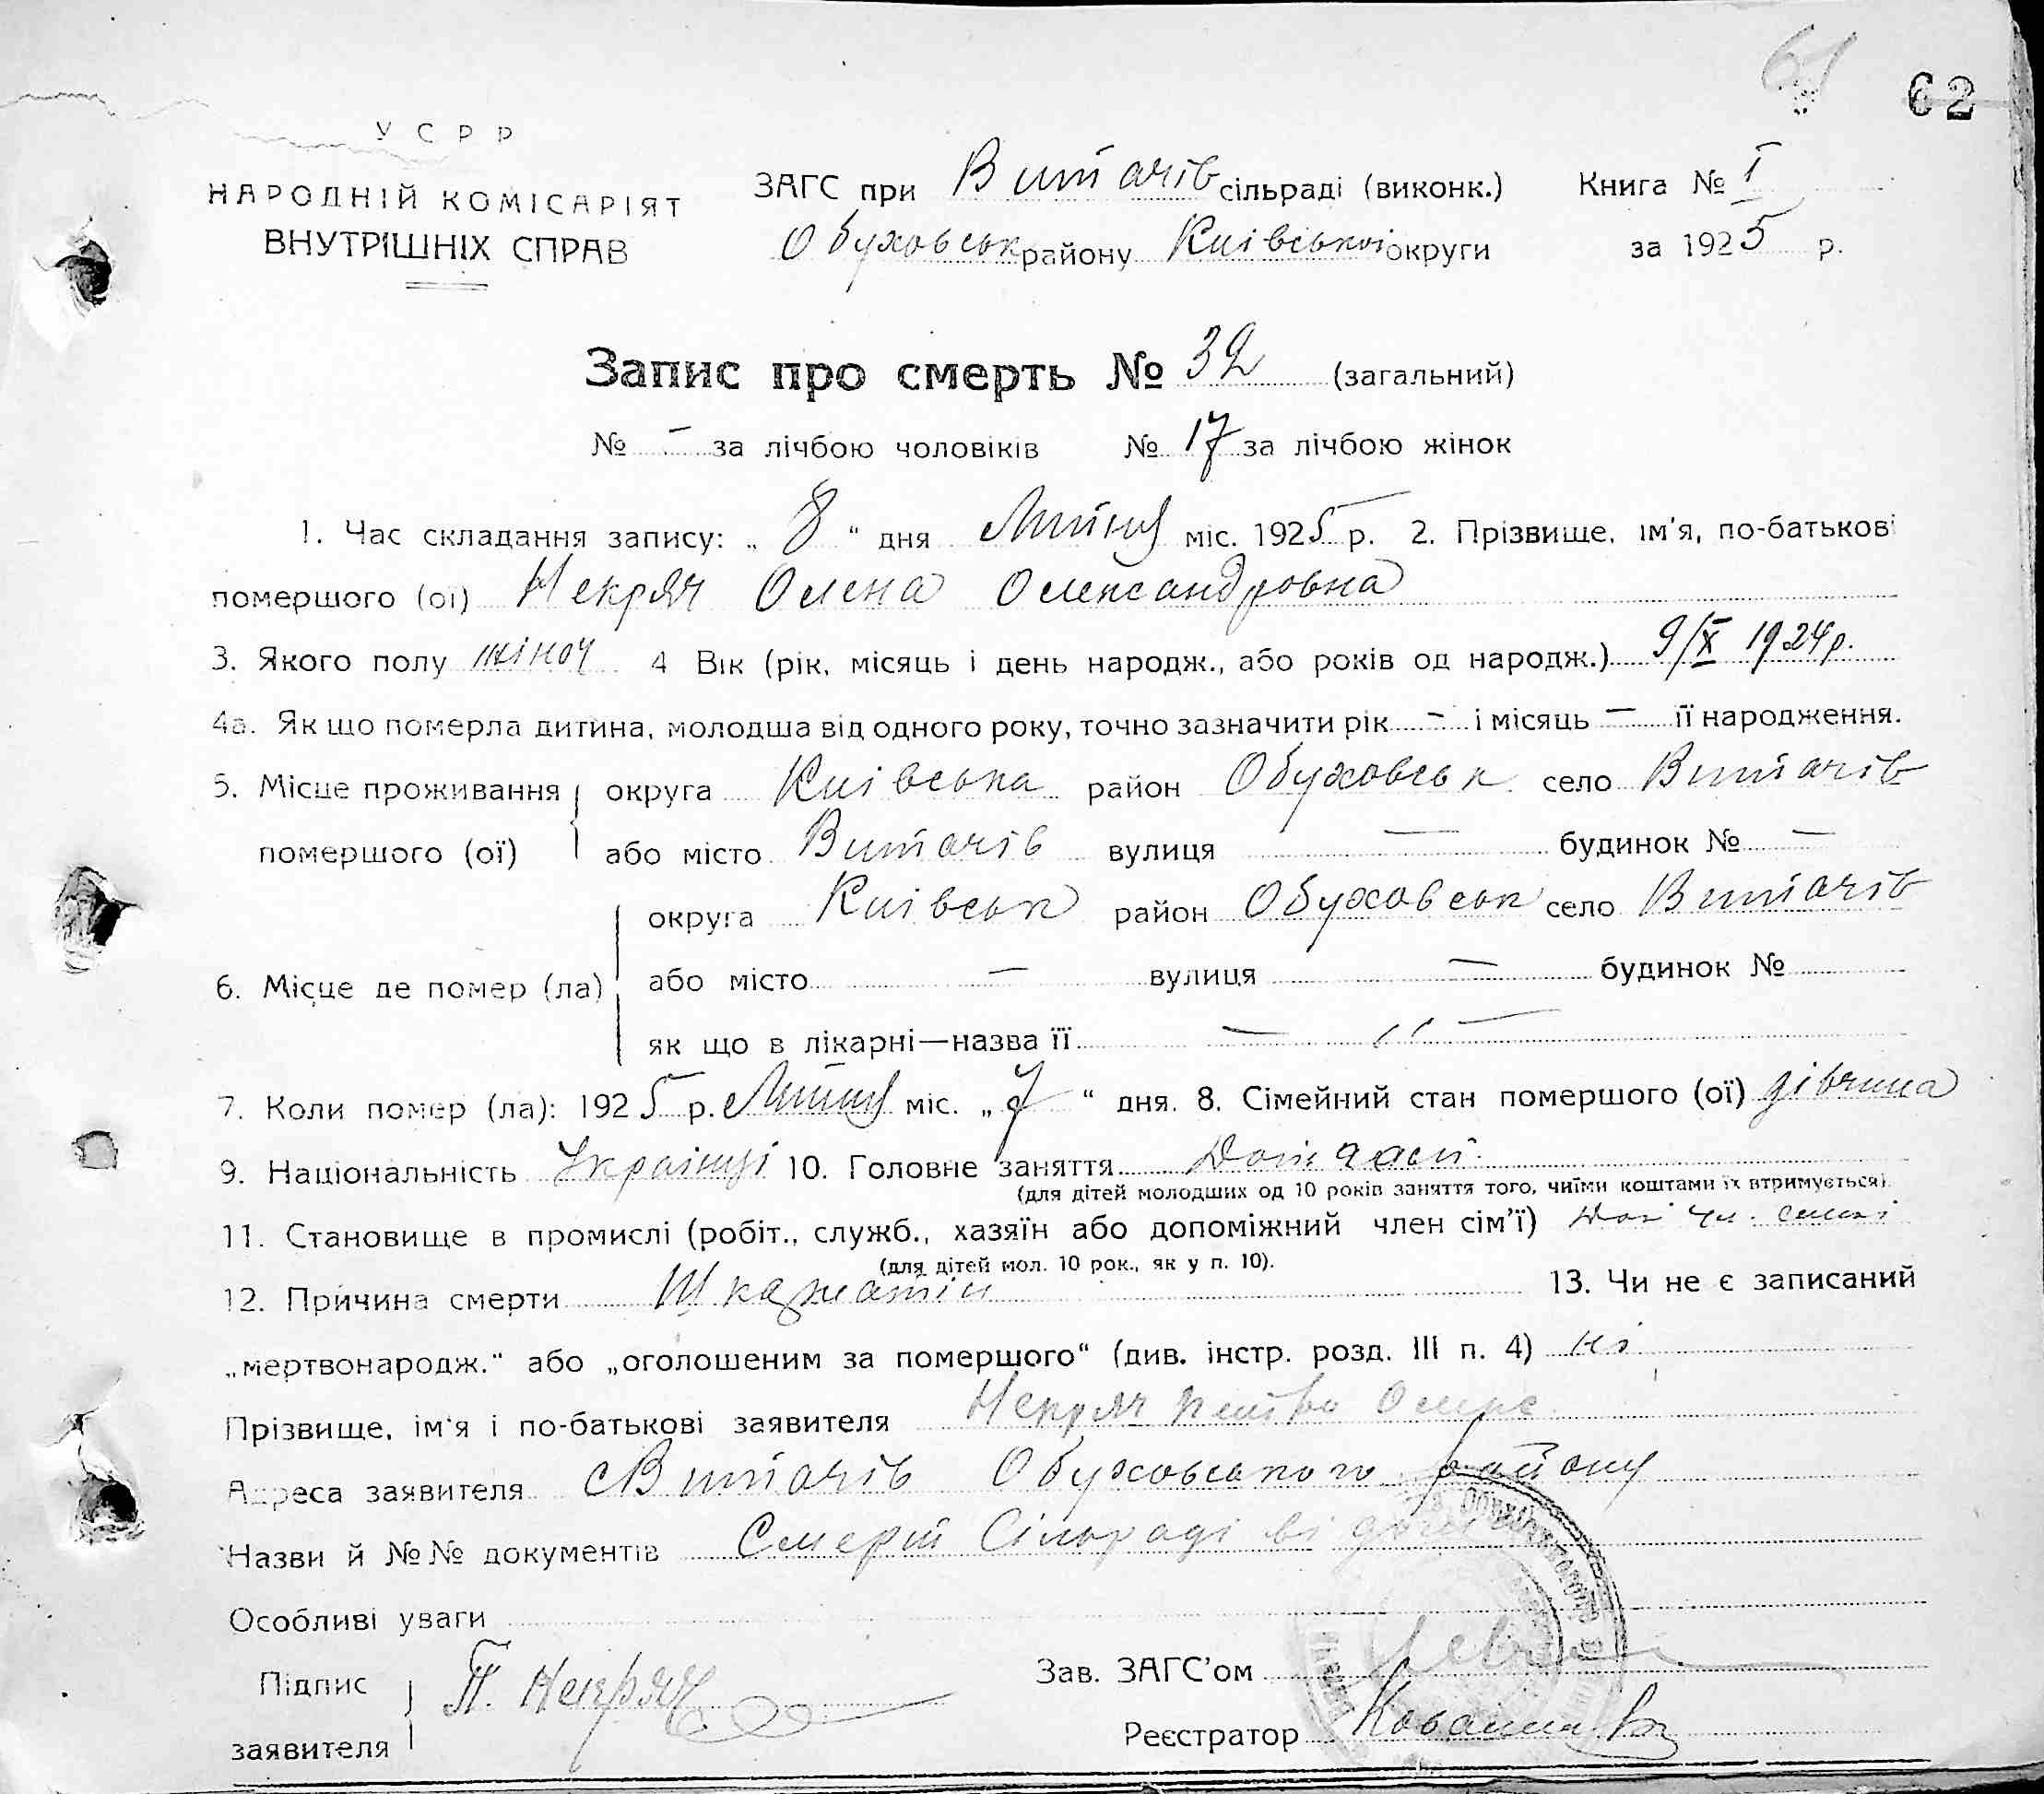 61
62
У С Р Р
НАРОДНІЙ КОМІСАРІЯТ
ВНУТРІШНІХ СПРАВ
ЗАГС при Витачів сільраді (виконк.) Книга № I
Обуховськ району Київської округи за 1925 р.
Запис про смерть № 32 (загальний)
№ – за лічбою чоловіків № 17 за лічбою жінок
1. Час складання запису: „ 8 “ дня Липня міс. 1925 р. 2. Прізвище, ім'я, по-батькові
помершого (ої) Некряч Олена Олександровна
3. Якого полу жіноч 4 Вік (рік, місяць і день народж., або років од народж.) 9/X 1924 р.
4а. Як що померла дитина, молодша від одного року, точно зазначити рік – і місяць – її народження.
5. Місце проживання округа Київська район Обуховськ село Витачів
помершого (ої) або місто Витачів вулиця – будинок № –
округа Київськ район Обуховськ село Витачів
6. Місце де помер (ла) або місто – вулиця – будинок №
як що в лікарні—назва її – „ –
7. Коли помер (ла): 1925 р. Липня міс. „ 7 “ дня. 8. Сімейний стан помершого (ої) дівчина
9. Національність Українці 10. Головне заняття
(для дітей молодших од 10 років заняття того, чиїми коштами їх втримується).
11. Становище в промислі (робіт., служб., хазяїн або допоміжний член сім'ї) Доп чл. сімї
(для дітей мол. 10 рок., як у п. 10).
12. Причина смерти 13. Чи не є записаний
„мертвонародж.“ або „оголошеним за помершого“ (див. інстр. розд. III п. 4) ні
Прізвище, ім'я і по-батькові заявителя Некряч
Адреса заявителя с Витачів Обуховського району
Назви й №№ документів Смерть Сільраді відома
Особливі уваги
Підпис заявителя П. Некряч
Зав. ЗАГС'ом
Реєстратор